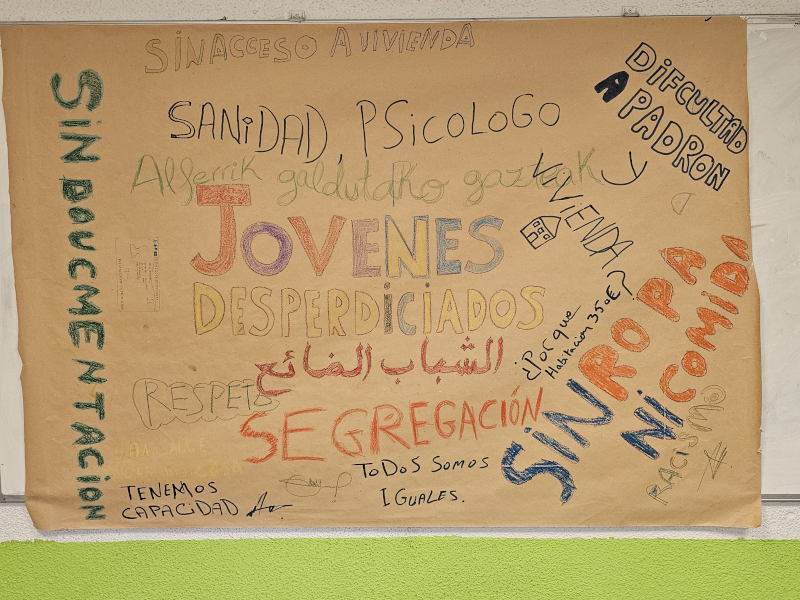 SIN ACCESO A VIVIENDA
SIN DOUCMENTACION
SANIDAD, PSICOLOGO
DIFCULTAD
A PADRON
Y
VIVIENDA
Alferrik galdutako gazteak
JOVENES
DESPERDICIADOS
الشباب الضائع
¿Porque
Habitacion 350€?
SIN ROPA
NI COMIDA
RESPETO
SEGREGACIÓN
RACISMO
TENEMOS
CAPACIDAD
TODOS SOMOS
IGUALES.